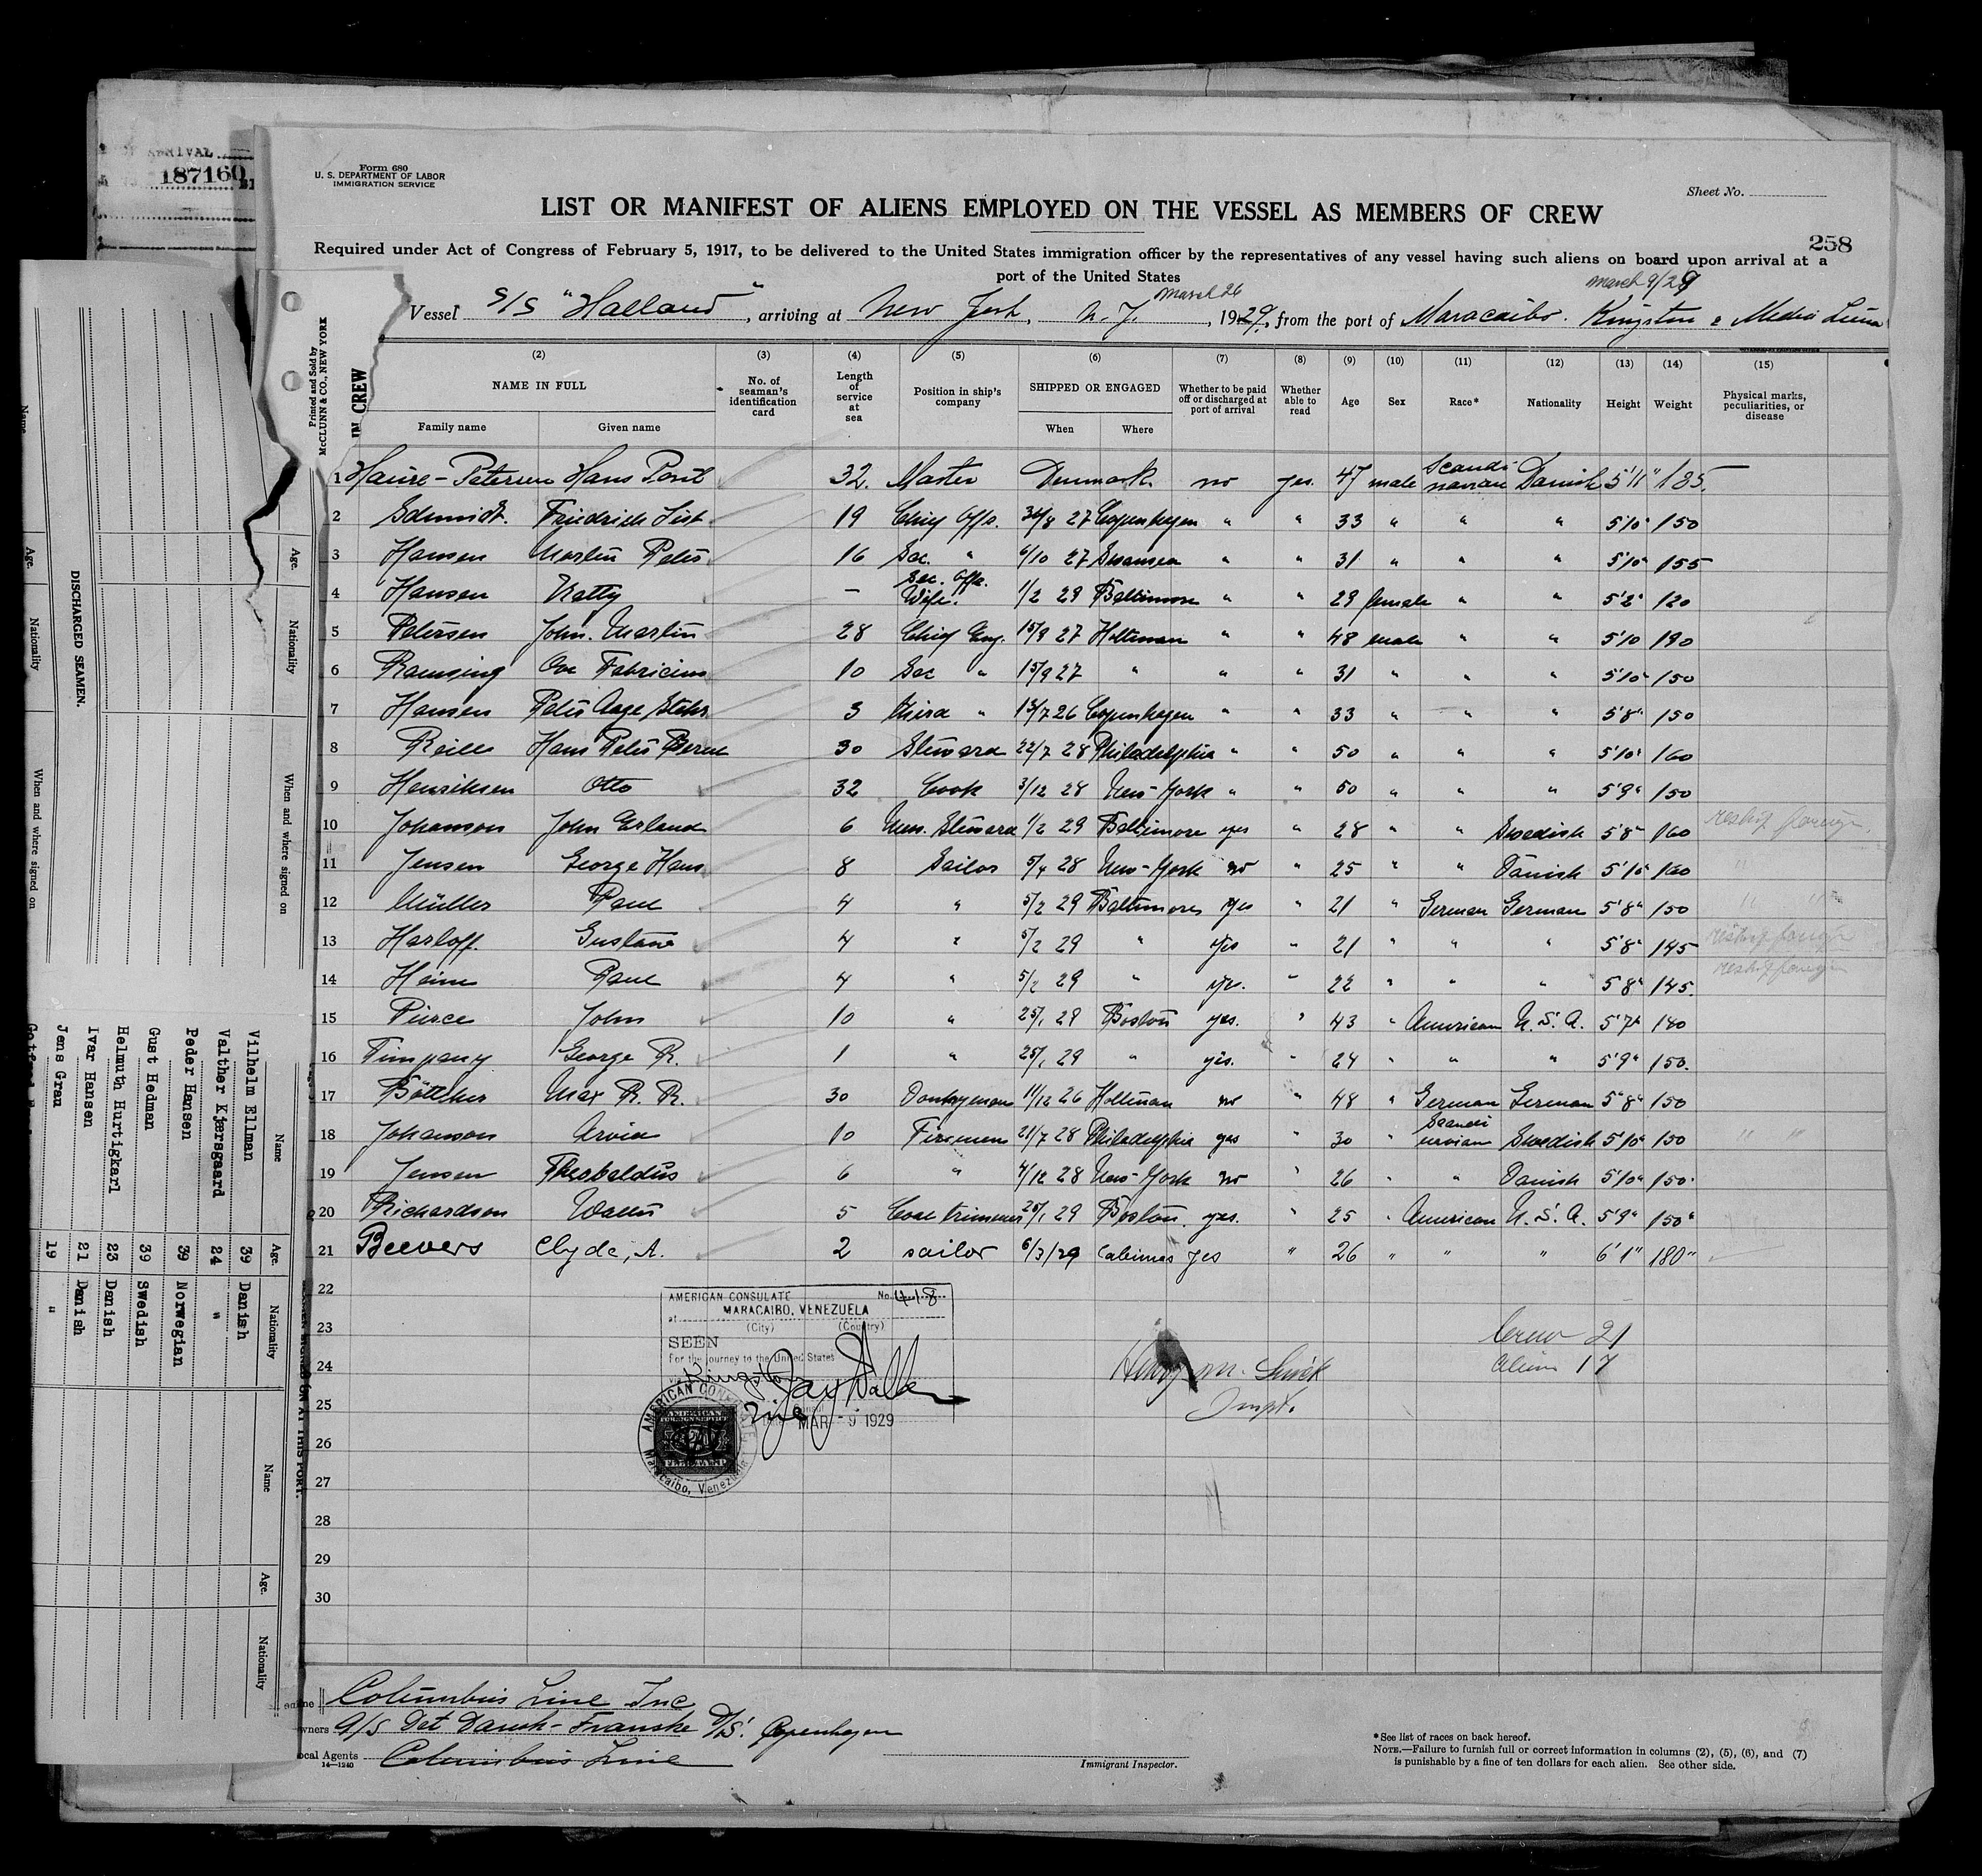 ARRIVAL
187160
Form 680
U. S. DEPARTMENT OF LABOR
IMMIGRATION SERVICE
Sheet No.
LIST OR MANIFEST OF ALIENS EMPLOYED ON THE VESSEL AS MEMBERS OF CREW
258
Required under Act of Congress of February 5, 1917, to be delivered to the United States immigration officer by the representatives of any vessel having such aliens on board upon arrival at a
port of the United States
March 26 March 9/29
Vessel S/S "Halland", arriving at New York, N. Y., 1929, from the port of Maracaibo. Kingston & Media Luna
Printed and Sold by
McCLUNN & CO., NEW YORK
IN CREW
(2) (3) (4) (5) (6) (7) (8) (9) (10) (11) (12) (13) (14) (15)
NAME IN FULL
Family name Given name
No. of seaman's identification card
Length of service at sea
Position in ship's company
SHIPPED OR ENGAGED
When Where
Whether to be paid off or discharged at port of arrival
Whether able to read
Age Sex Race* Nationality Height Weight
Physical marks, peculiarities, or disease
1 Haure-Petersen Hans Poul 32. Master Denmark no yes. 47 male Scandinavian Danish 5'11" 185.
2 Schmidt. Friedrich 19 Chief Offr. 30/8 27 Copenhagen " " 33 " " " 5'10" 150
3 Hansen Martin Peter 16 Sec. " 6/10 27 Swansea " " 31 " " " 5'10" 155
4 Hansen Natty — Sec. Offr. Wife. 1/2 29 Baltimore " " 29 female " " 5'2" 120
5 Petersen John. Martin 28 Chief Eng. 15/9 27 Holtenau " " 48 male " " 5'10 190
6 Ramsing Ove Fabricius 10 Sec " 15/9 27 " " " 31 " " " 5'10" 150
7 Hansen Peter Aage 3 Third " 13/7 26 Copenhagen " " 33 " " " 5'8" 150
8 Hans Peter 30 Steward 22/7 28 Philadelphia " " 50 " " " 5'10" 160
9 Henriksen Otto 32 Cook 3/12 28 New-York " " 50 " " " 5'9" 150
10 Johanson John Erland 6 Mess. Steward 1/2 29 Baltimore yes " 28 " " Swedish 5'8" 160 reship foreign.
11 Jensen George Hans 8 Sailor 5/4 28 New-York no " 25 " " Danish 5'10" 160
12 Müller Paul 4 " 5/2 29 Baltimore yes " 21 " German German 5'8" 150 " "
13 Harloff. Gustave 4 " 5/2 29 " yes " 21 " " " 5'8" 145 reship foreign
14 Heine Paul 4 " 5/2 29 " yes. " 22 " " " 5'8" 145. reship foreign
15 Pierce John 10 " 25/1 29 Boston yes. " 43 " American U. S. A. 5'7" 140
16 Timpany George R. 1 " 25/1 29 " yes. " 24 " " " 5'9" 150.
17 Böttcher Max R. R. 30 Donkeyman 11/12 26 Holtenau no " 48 " German German 5'8" 150
18 Johanson Arvid 10 Firemen 21/7 28 Philadelphia yes " 30 " Scandinavian Swedish 5'10" 150 " "
19 Jensen Theobaldus 6 " 4/12 28 New-York no " 26 " " Danish 5'10" 150.
20 Richardson Walter 5 Coal trimmer 25/1 29 Boston. yes. " 25 " American U. S. A. 5'9" 150"
21 Beevers Clyde, A. 2 sailor 6/3/29 Cabimas yes " 26 " " " 6'1" 180"
22
23
24
25
26
27
28
29
30
AMERICAN CONSULATE No. 418
at MARACAIBO, VENEZUELA
(City) (Country)
SEEN
For the journey to the United States
via Kingston
MAR - 9 1929
AMERICAN CONSULATE
Maracaibo, Venezuela
AMERICAN
FOREIGN SERVICE
FEE STAMP
Crew 21
Alien 17
Henry M.
Inspt.
Columbus Line Inc
Owners A/S Det Dansk-Franske D/S. Copenhagen
Local Agents Columbus Line
14—1240
Immigrant Inspector.
*See list of races on back hereof.
NOTE.—Failure to furnish full or correct information in columns (2), (5), (6), and (7)
is punishable by a fine of ten dollars for each alien. See other side.
DISCHARGED SEAMEN.
Name Age. Nationality When and where signed on
Age. Nationality When and where signed on
Name Age. Nationality Name Age. Nationality
Vilhelm Ellman 39 Danish
Valther Kjærsgaard 24 "
Peder Hansen 39 Norwegian
Gust Hedman 39 Swedish
Helmuth Hurtigkarl 23 Danish
Ivar Hansen 21 Danish
Jens Grau 19 "
AT THIS PORT.